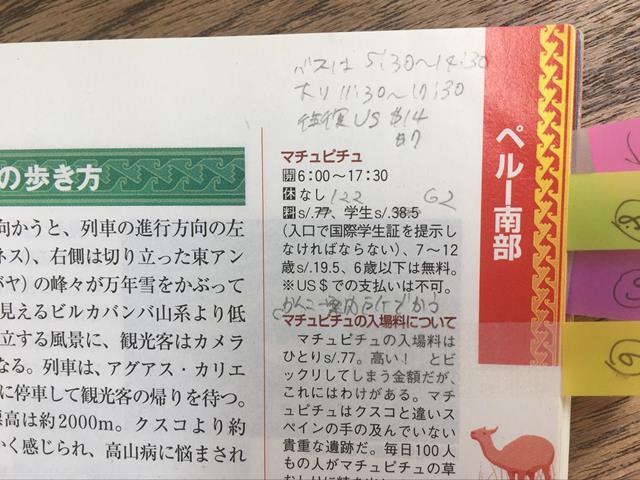 バスは 5:30〜14:30
下り 11:30〜17:30
往復 US $14
$7
ペルー南部
の歩き方
マチュピチュ
開6:00〜17:30
休なし
122 62
料s/.77、学生s/.38.5
(入口で国際学生証を提示し
なければならない)、7〜12
歳s/.19.5、6歳以下は無料。
※US$での支払いは不可。
マチュピチュの入場料について
マチュピチュの入場料は
ひとりs/.77。高い! と
ビックリしてしまう金額だが、
これにはわけがある。マチ
ュピチュはクスコと違いス
ペインの手の及んでいない
貴重な遺跡だ。毎日100人
もの人がマチュピチュの草
向かうと、列車の進行方向の左
ネス)、右側は切り立った東アン
ヤ)の峰々が万年雪をかぶって
見えるビルカバンバ山系より低
立する風景に、観光客はカメラ
なる。列車は、アグアス・カリエ
に停車して観光客の帰りを待つ。
標高は約2000m。クスコより約
く感じられ、高山病に悩まされ